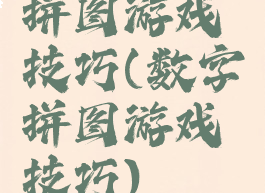 拼图游戏
技巧(数字
拼图游戏
技巧)